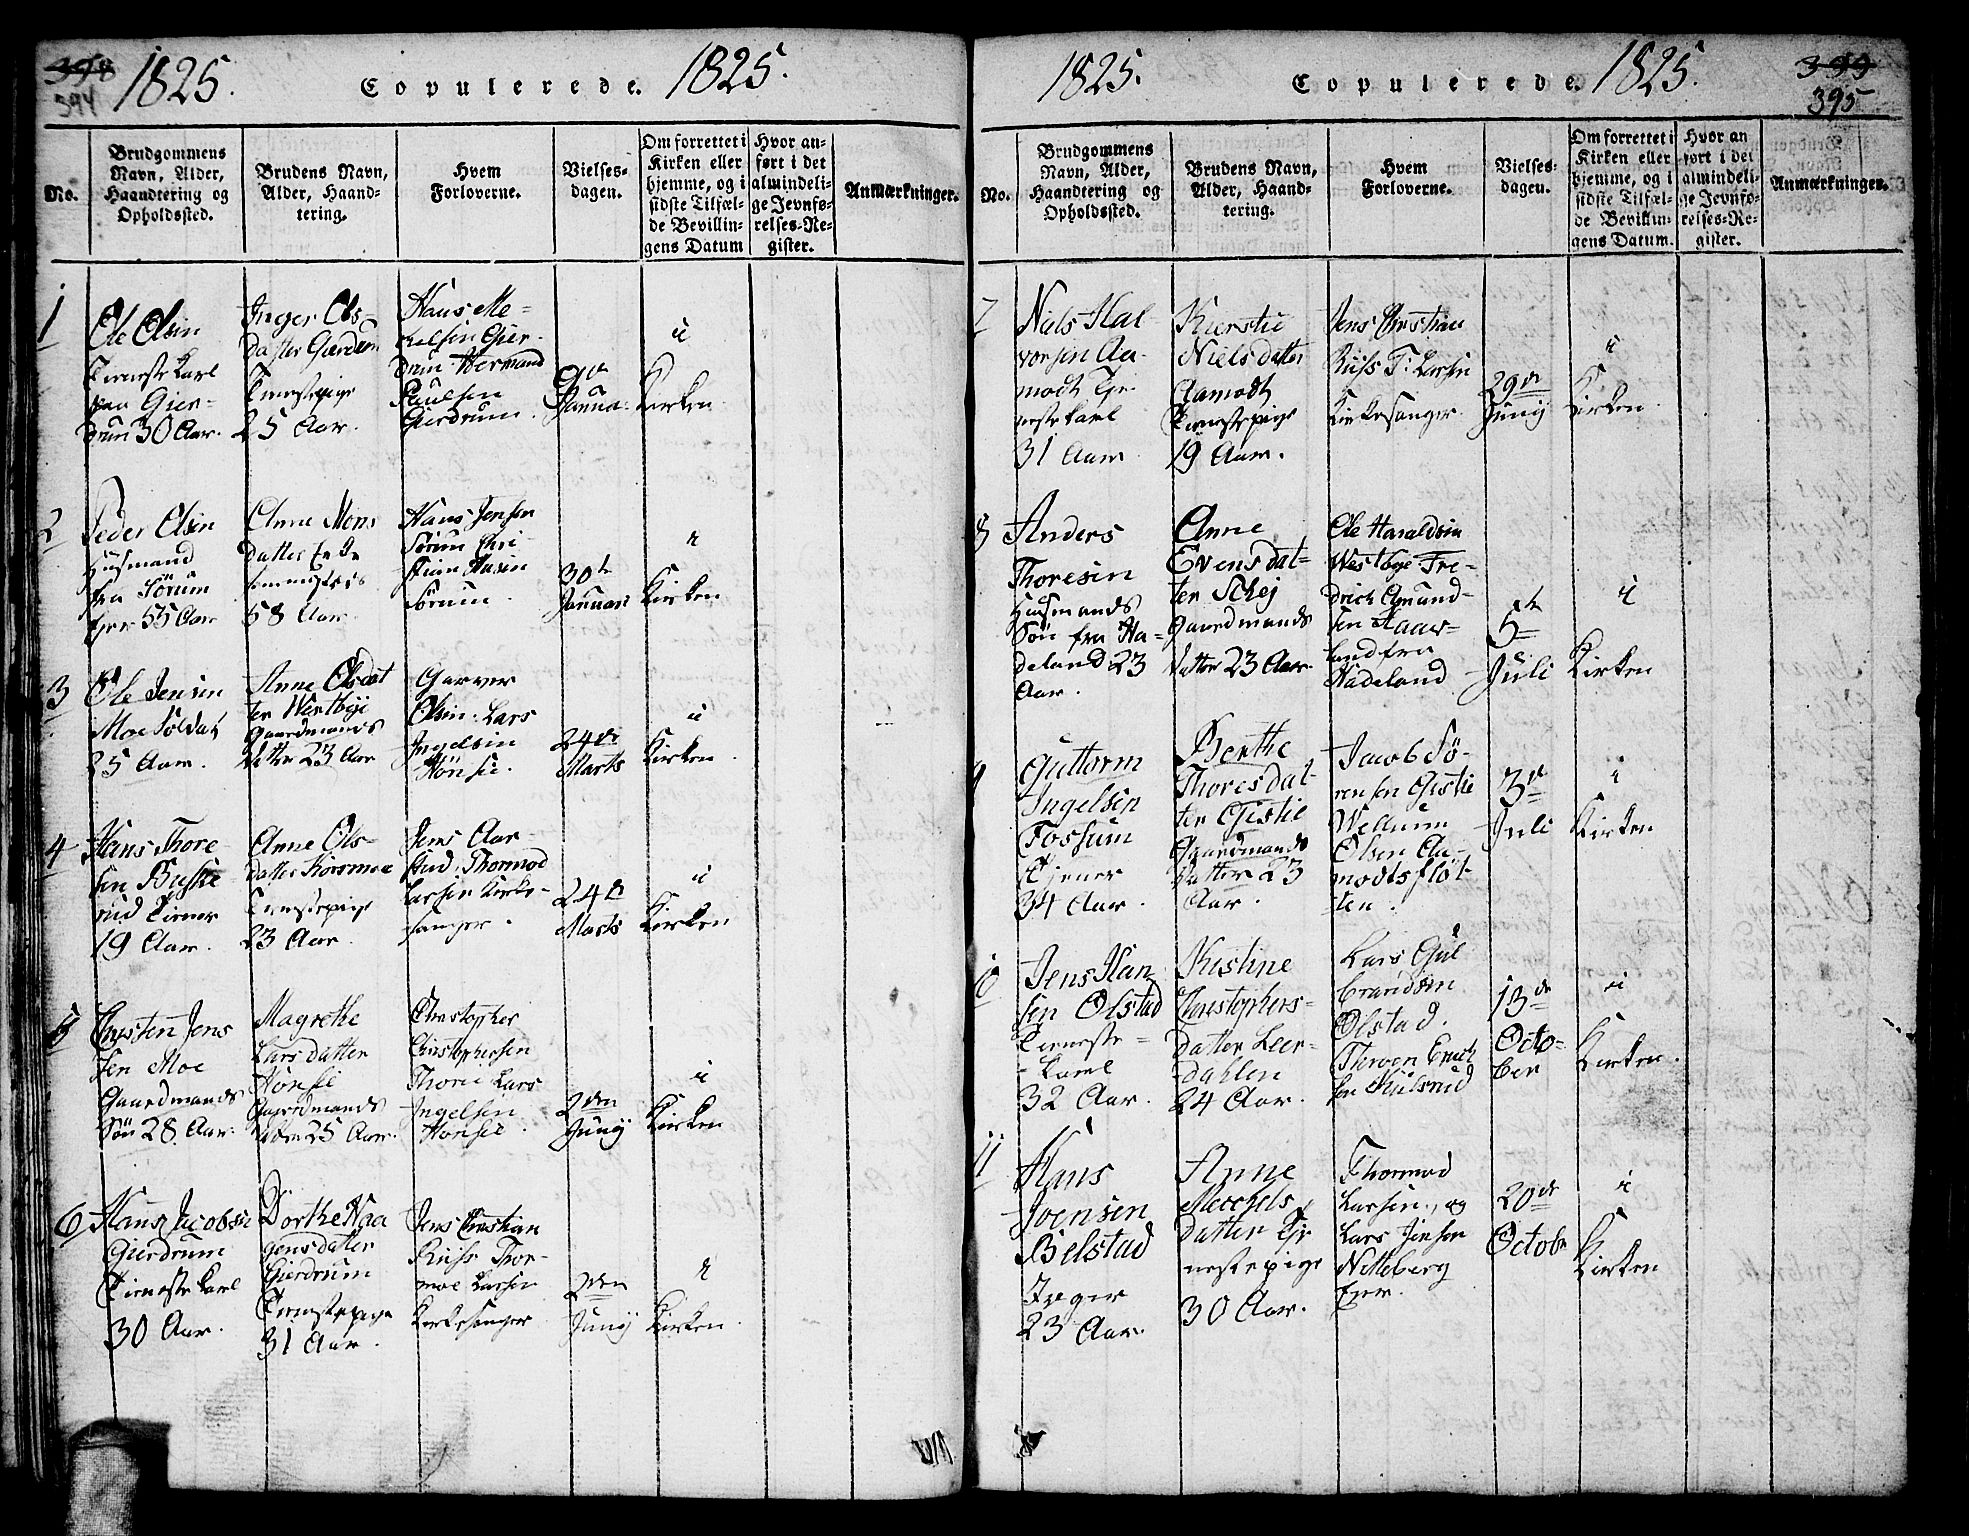 398
394
1825. Copulerede. 1825.
No.
Brudgommens
Navn, Alder,
Haandtering og
Opholdssted.
Brudens Navn,
Alder, Haand-
tering.
Hvem
Forloverne.
Vielses-
dagen.
Om forrettet i
Kirken eller
hjemme, og i
sidste Tilfæl-
de Bevillin-
gens Datum
Hvor an-
ført i det
almindeli-
ge Jevnfø-
relses-Re-
gister.
Anmærkninger.
1
Ole Olsin
Tieneste Karl
Gier-
drum 30 Aar.
Inger Ols-
datter Gierdrum
Tienestepige
25 Aar.
Hans
Gier-
drum Hermand
Paulsen
Gierdrum.
9de
Janua.
i
Kirken.
2
Peder Olsin
Huusmand
fra Sörum
55 Aar
Anne Mons
datter Enke
58 Aar.
Hans Jensen
Sörum Chri-
Sörum.
30te
Januari
i
Kirken
3
Ole Jensin
Moe Soldat
25 Aar.
Anne Olsdat
ter Westbye
Gaardmands
datter 23 Aar
Garver
Olsin. Lars
Ingelsin
Hönsie.
24de
Marts
i
Kirken.
4
Hans Thore-
sen Buske-
rud Tiener
19 Aar.
Anne Ols-
datter Korsmoe
Tienestepige
23 Aar.
Jens Aar-
Thormod
Larsin Kirke-
sanger.
24de
Marts
i
Kirken
5
Christen Jens
sen Moe
Gaardmands
Sön 28 Aar.
Magrethe
Larsdatter
Hönsie
Gaardmands
datter 25 Aar.
Christopher
Christophersen
Lars
Ingelsin
Hönsie.
2den
Junij
i
Kirken
6
Hans Jacobsen
Gierdrum
Tieneste karl
30 Aar.
Dorthe Haa
gensdatter
Gierdrum
Tienestepige
31 Aar.
Jens Christian
Riise Thor-
moe Larsin
Kirkesanger
2den
Junij
i
Kirken.
1825. Copulerede. 1825.
399
395
No.
Brudgommens
Navn, Alder,
Haandtering og
Opholdssted.
Brudens Navn,
Alder, Haand-
tering.
Hvem
Forloverne.
Vielses-
dagen.
Om forrettet i
Kirken eller
hjemme, og i
sidste Tilfæl-
de Bevillin-
gens Datum.
Hvor an
ført i det
almindeli-
ge Jevnfø-
relses-Re-
gister.
Anmærkninger.
7
Niels Hal-
vorsin Aa-
modt Tje-
nestekarl
31 Aar
Kierstie
Nielsdatter
Aamodt
Tienestepige
19 Aar.
Jens Christian
Riise T: Larsen
Kirkesanger.
29de
Junij
i
Kirken.
8
Anders
Thoresin
Huusmands
Sön fra Ha-
deland 23
Aar.
Anne
Evensdat-
ter Schej
Gaardmands
datter 23 Aar.
Ole Haraldsin
Westbye Fre-
drich Amund-
sen Haar-
land fra
Hadeland
5te
Juli
i
Kirken
9
Guttorm
Ingelsin
Fossum
Tjener
34 Aar.
Berthe
Thoresdat-
ter Gistie
Gaardmands
datter 23
Aar.
Jacob Sö-
rensen Gistie
Willum
Olsen Aa-
modtsflöt-
ten.
3de
Juli
i
Kirken
10
Jens Han
sen Ölstad
Tieneste-
-karl
32 Aar.
Kistine
Christophers-
datter Leer-
dahlen
24 Aar.
Lars Gul
brandsen
Ölstad.
Kulsrud
13de
Octo-
ber
i
Kirken.
11
Hans
Ivensen
Bielstad
Jæger
23 Aar.
Anne
Mechels
datter Tje
nestepige
30 Aar.
Thormod
Larsin, og
Lars Jensen
Nitteberg
Eier.
20de
Octobr
i
Kirken